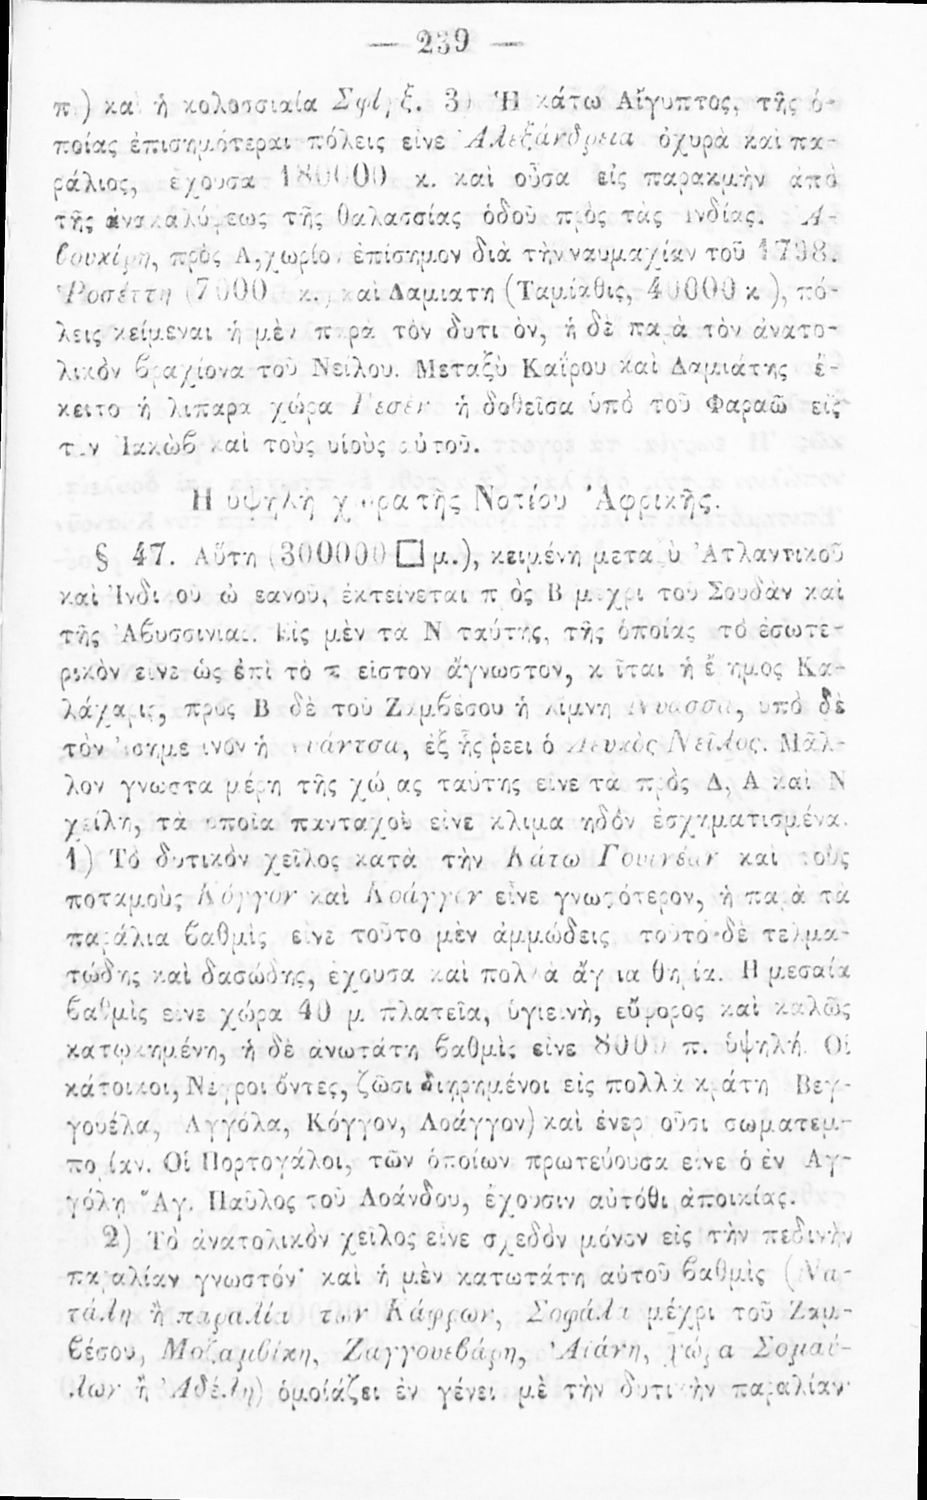 — 239 —
π.) καὶ ἡ κολοσσιαία Σφίγξ. 3) Ἡ κάτω Αἴγυπτος, τῆς ὁ-
ποίας ἐπισημότεραι πόλεις εἶνε Ἀλεξάνδρεια ὀχυρὰ καὶ πα-
ράλιος, ἔχουσα 180000 κ. καὶ οὖσα εἰς παρακμὴν ἀπὸ
τῆς ἀνακαλύψεως τῆς θαλασσίας ὁδοῦ πρὸς τὰς Ἰνδίας. Ἀ-
βουκίρη, πρὸς Α, χωρίον ἐπίσημον διὰ τὴν ναυμαχίαν τοῦ 1798.
Ῥοσέττη (7000 κ.) καὶ Δαμιατη (Ταμίαθις, 40000 κ.), πό-
λεις κείμεναι ἡ μὲν παρὰ τὸν δυτικὸν, ἡ δὲ παρὰ τὸν ἀνατο-
λικὸν βραχίονα τοῦ Νείλου. Μεταξὺ Καΐρου καὶ Δαμιάτης ἔ-
κειτο ἡ λιπαρὰ χώρα Γεσὲν ἡ δοθεῖσα ὑπὸ τοῦ Φαραῶ εἰς
τὸν Ἰακὼβ καὶ τοὺς υἱοὺς αὐτοῦ.
Ἡ ὑψηλὴ χώρα τῆς Νοτίου Ἀφρικῆς.
§ 47. Αὕτη (300000 □ μ.), κειμένη μεταξὺ Ἀτλαντικοῦ
καὶ Ἰνδικοῦ ὠκεανοῦ, ἐκτείνεται πρὸς Β μέχρι τοῦ Σουδὰν καὶ
τῆς Ἀβυσσινίας. Εἰς μὲν τὰ Ν ταύτης, τῆς ὁποίας τὸ ἐσωτε-
ρικὸν εἶνε ὡς ἐπὶ τὸ πλεῖστον ἄγνωστον, κεῖται ἡ ἔρημος Κα-
λάχαρις, πρὸς Β δὲ τοῦ Ζαμβέσου ἡ λίμνη Νυασσα, ὑπὸ δὲ
τὸν ἰσημερινὸν ἡ Νυάντσα, ἐξ ἧς ῥέει ὁ Λευκὸς Νεῖλος. Μᾶλ-
λον γνωστὰ μέρη τῆς χώρας ταύτης εἶνε τὰ πρὸς Δ, Α καὶ Ν
χείλη, τὰ ὁποῖα πανταχοῦ εἶνε κλιμακηδὸν ἐσχηματισμένα.
1) Τὸ δυτικὸν χεῖλος κατὰ τὴν Κάτω Γουινέαν καὶ τοὺς
ποταμοὺς Κόγγον καὶ Κοάγγον εἶνε γνωστότερον, ἡ παρὰ τὰ
παράλια βαθμὶς εἶνε τοῦτο μὲν ἀμμώδεις τοῦτο δὲ τελμα-
τώδης καὶ δασώδης, ἔχουσα καὶ πολλὰ ἄγρια θηρία. Ἡ μεσαία
βαθμὶς εἶνε χώρα 40 μ. πλατεῖα, ὑγιεινὴ, εὔφορος καὶ καλῶς
κατῳκημένη, ἡ δὲ ἀνωτάτη βαθμὶς εἶνε 8000 π. ὑψηλή. Οἱ
κάτοικοι, Νέγροι ὄντες, ζῶσι διῃρημένοι εἰς πολλὰ κράτη Βεγ-
γουέλα, Ἀγγόλα, Κόγγον, Λοάγγον) καὶ ἐνεργοῦσι σωματεμ-
πορίαν. Οἱ Πορτογάλοι, τῶν ὁποίων πρωτεύουσα εἶνε ὁ ἐν Ἀγ-
γόλῃ Ἅγ. Παῦλος τοῦ Λοάνδου, ἔχουσιν αὐτόθι ἀποικίας.
2) Τὸ ἀνατολικὸν χεῖλος εἶνε σχεδὸν μόνον εἰς τὴν πεδινὴν
παραλίαν γνωστόν· καὶ ἡ μὲν κατωτάτη αὐτοῦ βαθμὶς (Να-
τάλη ἢ παραλία τῶν Κάφρων, Σοφάλα μέχρι τοῦ Ζαμ-
βέσου, Μοζαμβίκη, Ζαγγουεβάρη, Ἀϊάνη, χώρα Σομαύ-
λων ἢ Ἀδέλη) ὁμοιάζει ἐν γένει μὲ τὴν δυτικὴν παραλίαν·